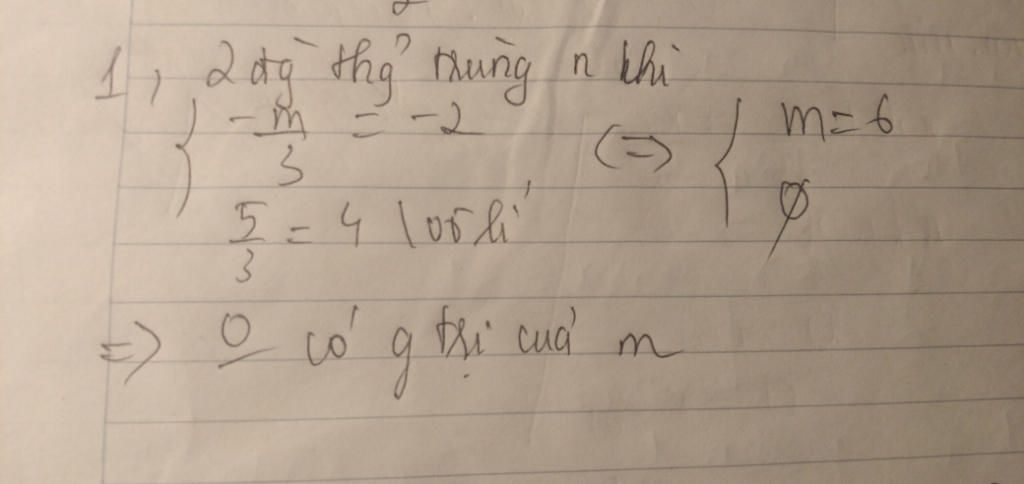 1, 2 đg thg trùng n khi
{ -m/3 = -2 <=> { m = 6
5/3 = 4 (vô lí) ∅
=> 0 có g trị của m